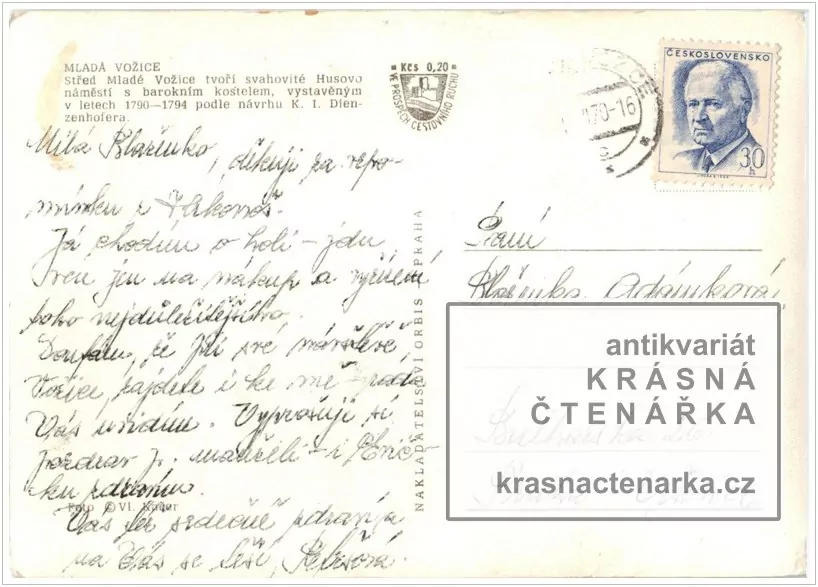 MLADÁ VOŽICE
Střed Mladé Vožice tvoří svahovité Husovo
náměstí s barokním kostelem, vystavěným
v letech 1790—1794 podle návrhu K. I. Dien-
zenhofera.
Kčs 0,20
VE PROSPĚCH CESTOVNÍHO RUCHU
70-16
ČESKOSLOVENSKO
30
h
Milá Blaženko, děkuji za vzpo-
mínku z Krkonoš.
Já chodím o holi – jdu
ven jen na nákup a vyřízení
toho nejdůležitějšího.
Doufám, že při své návštěvě
Vožice, zajdete i ke mě – ráda
Vás uvidím. Vyprošuji si
pozdrav p. manželi – i
Vás srdečně zdraví a
na Vás se těší,
Foto © Vl.
NAKLADATELSTVÍ ORBIS PRAHA
Paní
Blaženka Adámková
antikvariát
KRÁSNÁ
ČTENÁŘKA
krasnactenarka.cz